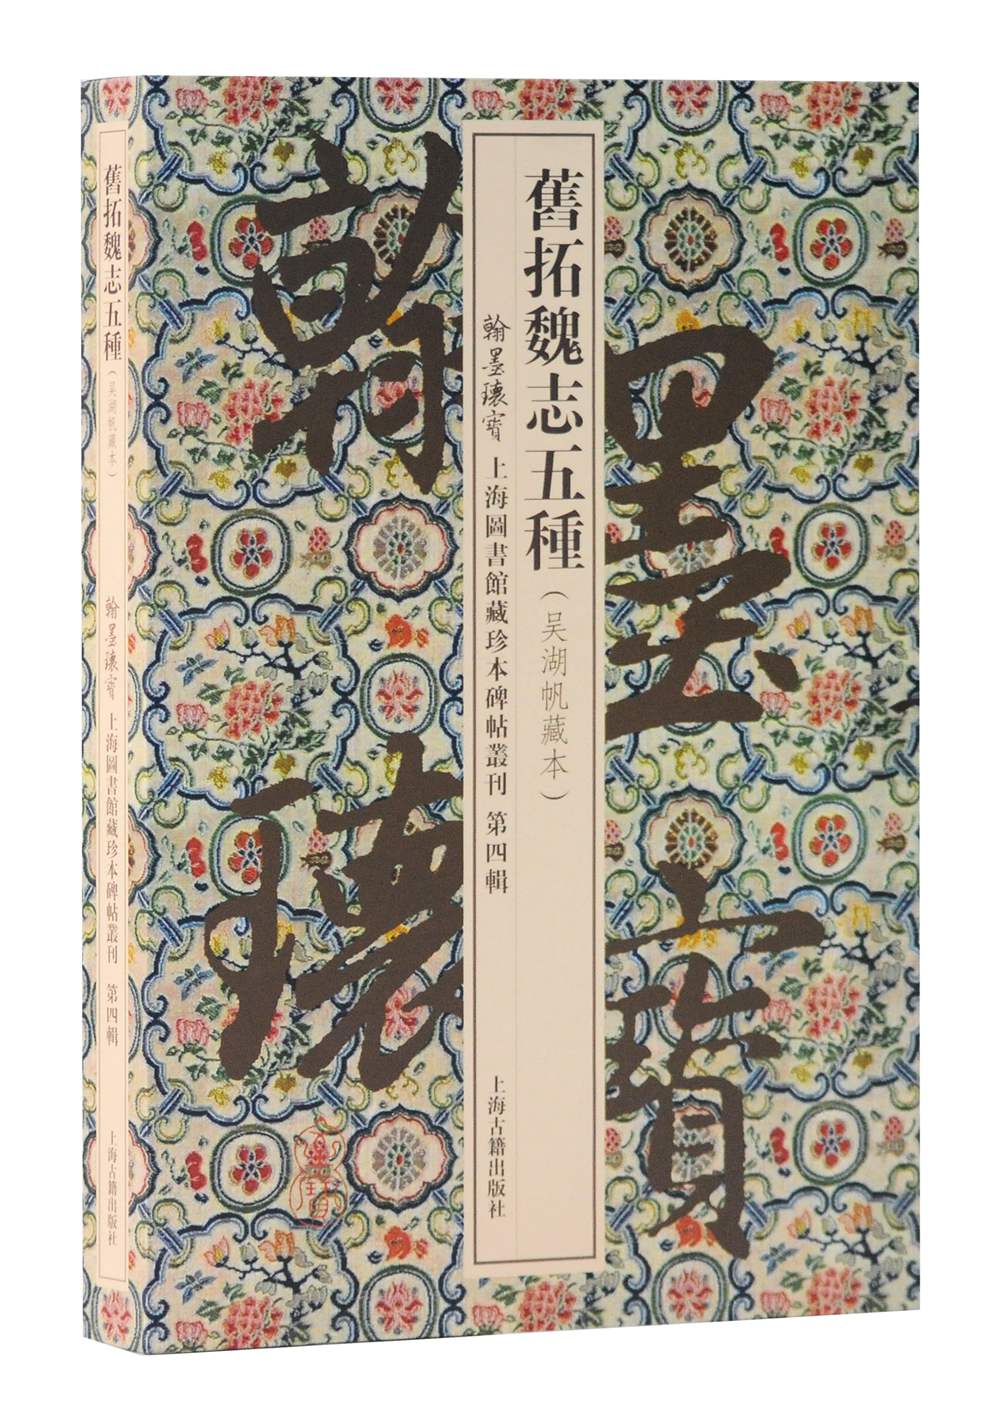 舊拓魏志五種（吴湖帆藏本）
翰墨瓌寶 上海圖書館藏珍本碑帖叢刊 第四輯
上海古籍出版社
翰墨
瓌寶
舊拓魏志五種（吴湖帆藏本）
翰墨瓌寶 上海圖書館藏珍本碑帖叢刊 第四輯
上海古籍出版社